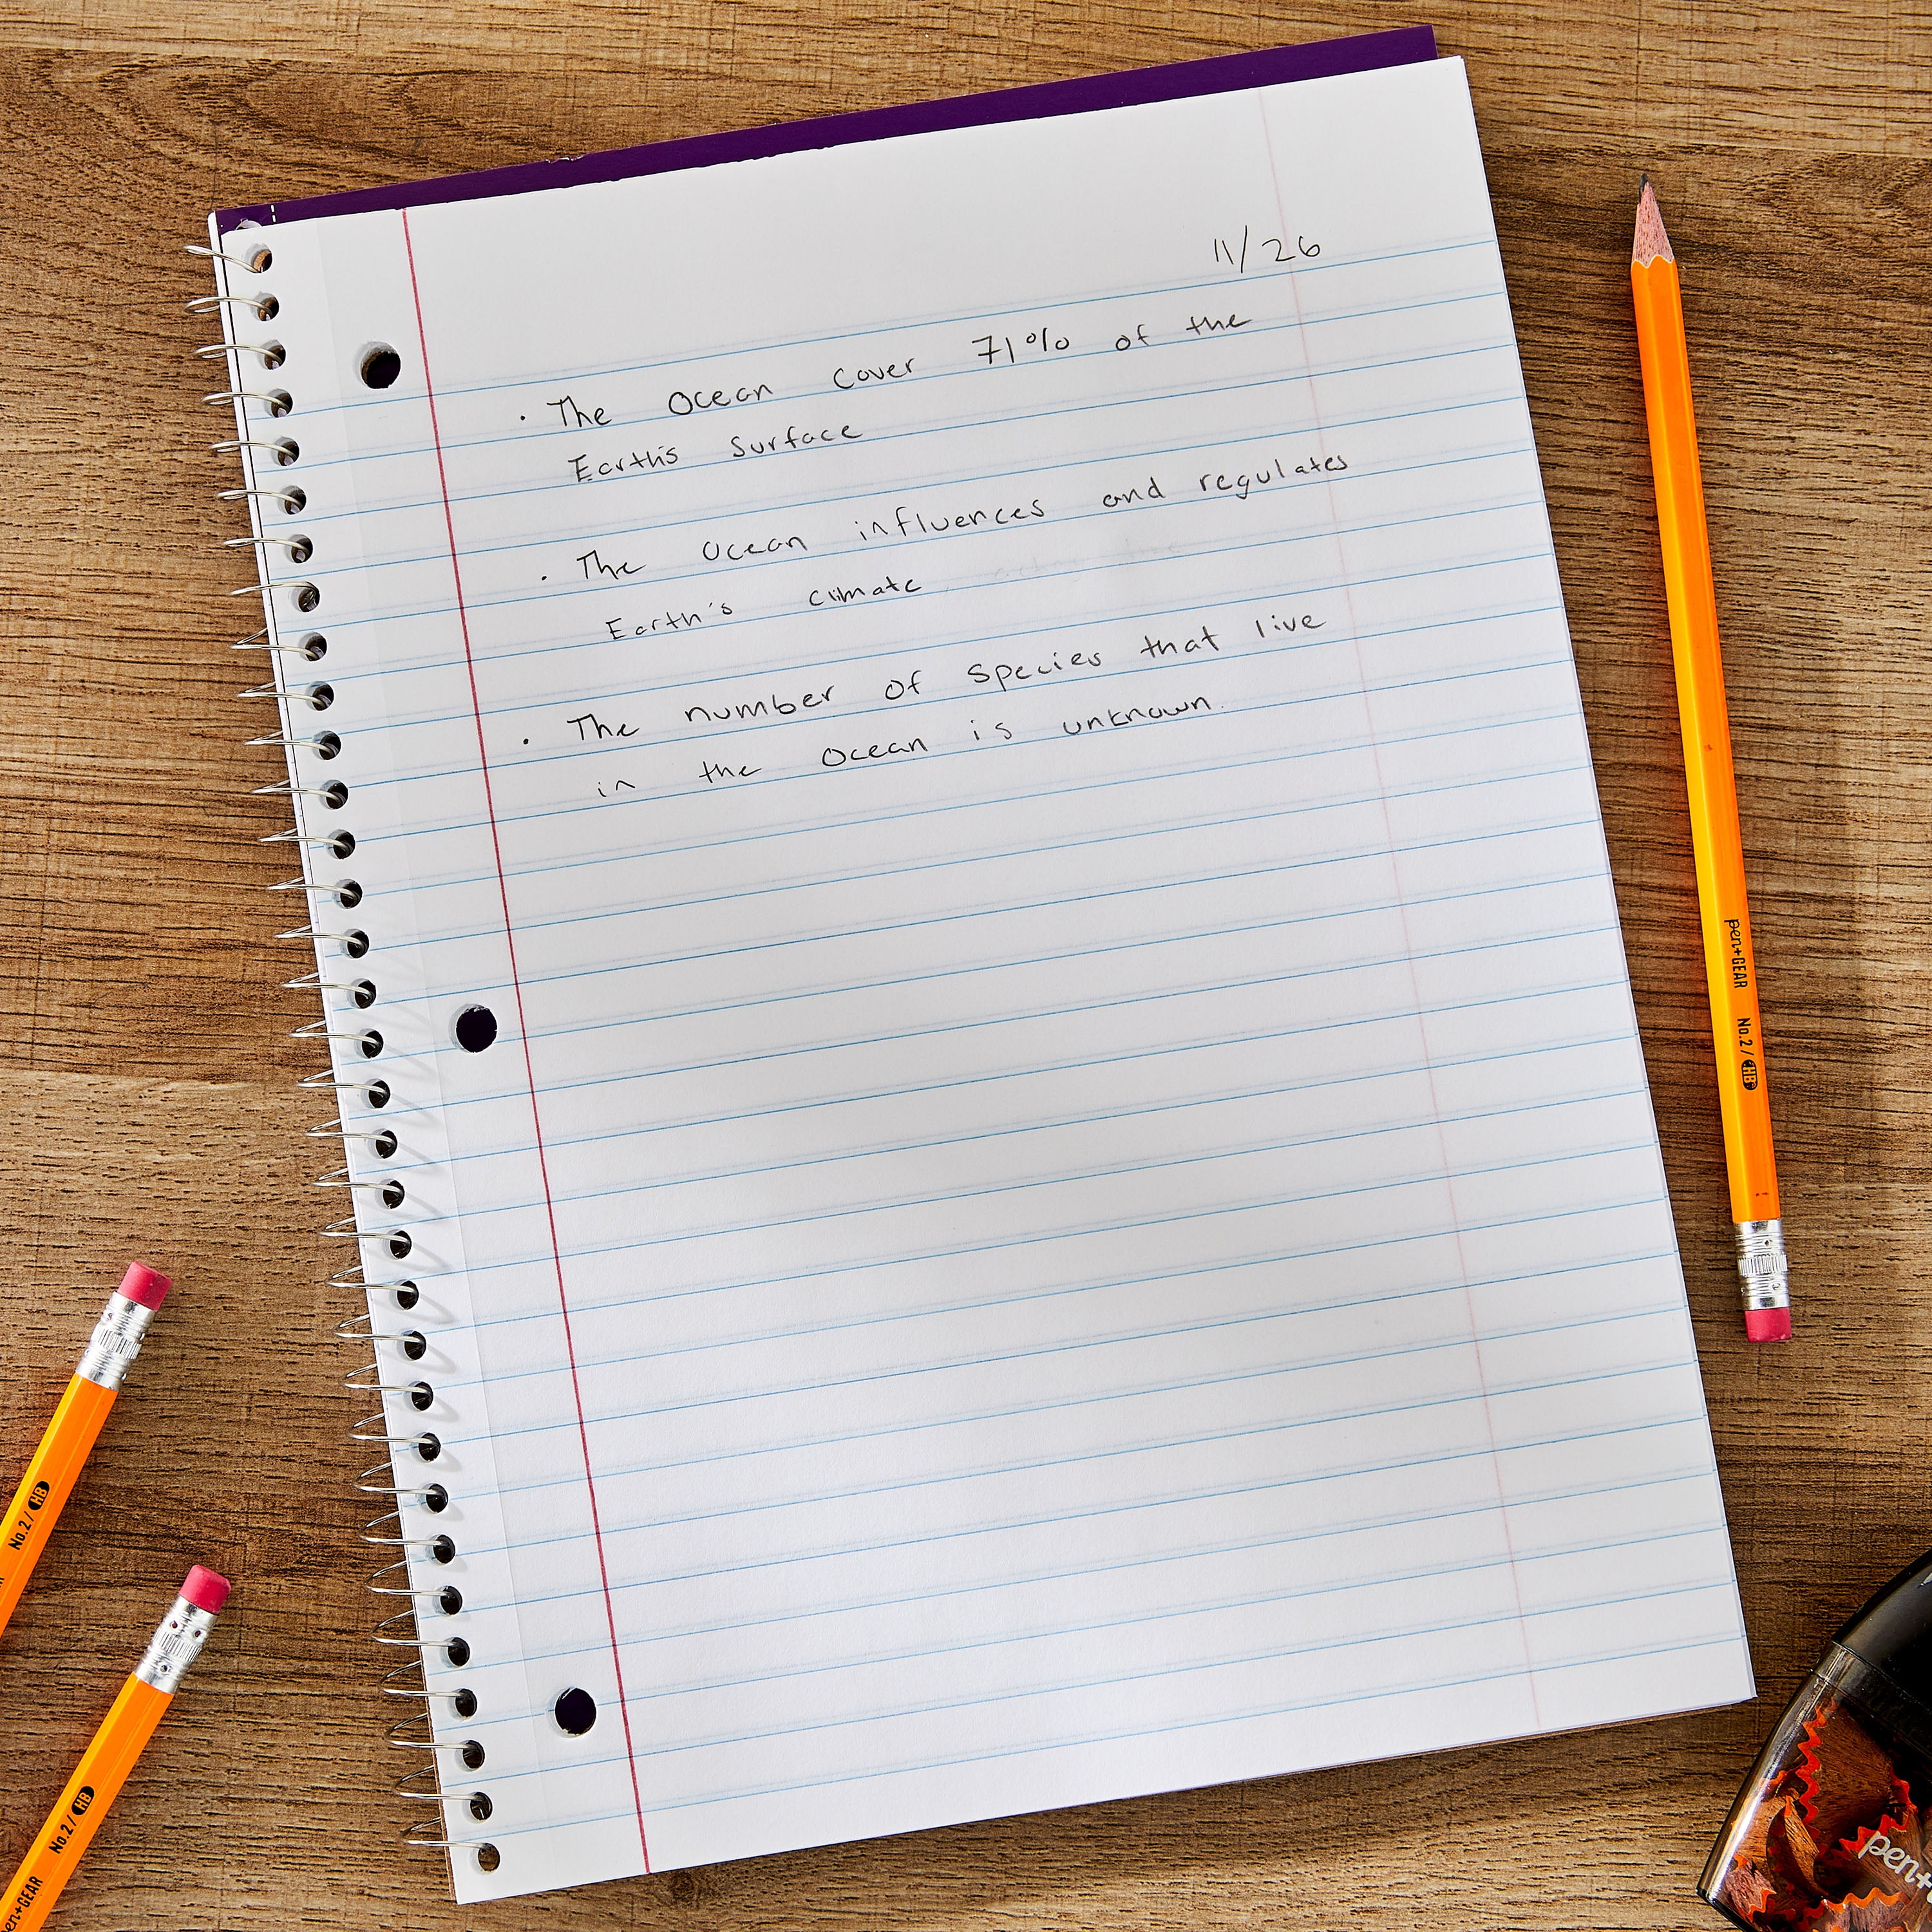 11/26
· The Ocean cover 71% of the
Earth's Surface
· The Ocean influences and regulates
Earth's climate
· The number of species that live
in the Ocean is unknown.
pen+GEAR No.2 / HB
No.2 / HB
pen+GEAR No.2 / HB
pen+